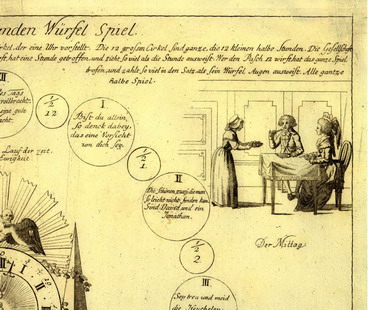 nden Würfel Spiel.
rkel, der eine Uhr vorstellt. Die 12 grosen Cirkel sind ganze, die 12 kleinen halbe Stunden. Die Gesellschaft
ft hat eine Stunde getroffen, und ziehe so viel als die Stunde ausweist. Wer den Pasch 12 wirft hat das ganze Spiel
trofen, und zahlt so viel in den Satz, als sein Würfel Augen ausweist. Alle gantze
halbe Spiel.
XII
des Tags
vollbracht
gute
nacht.
1/2
12
I
Bist du allein,
so denck dabey,
das eine Vorsicht
um dich sey.
Lauf der Zeit.
Ewigkeit
1/2
1
II
Die Säulen zwey die man
so leicht nicht finden kan
Sind David und ein
Jonathan.
1/2
2
Der Mittag.
III
Sey treu und meid
die Heucheley
I
II